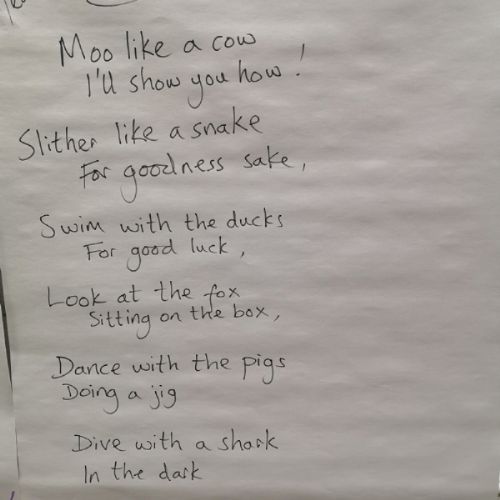 Moo like a cow
I'll show you how!
Slither like a snake
For goodness sake,
Swim with the ducks
For good luck,
Look at the fox
Sitting on the box,
Dance with the pigs
Doing a jig
Dive with a shark
In the dark